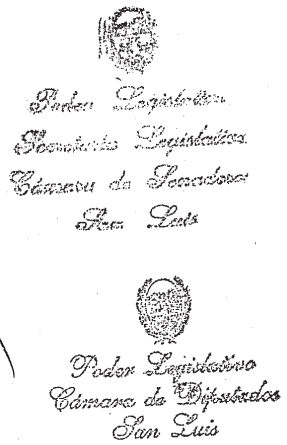 Poder Legislativo
Secretaría Legislativa
Cámara de Senadores
San Luis
Poder Legislativo
Cámara de Diputados
San Luis